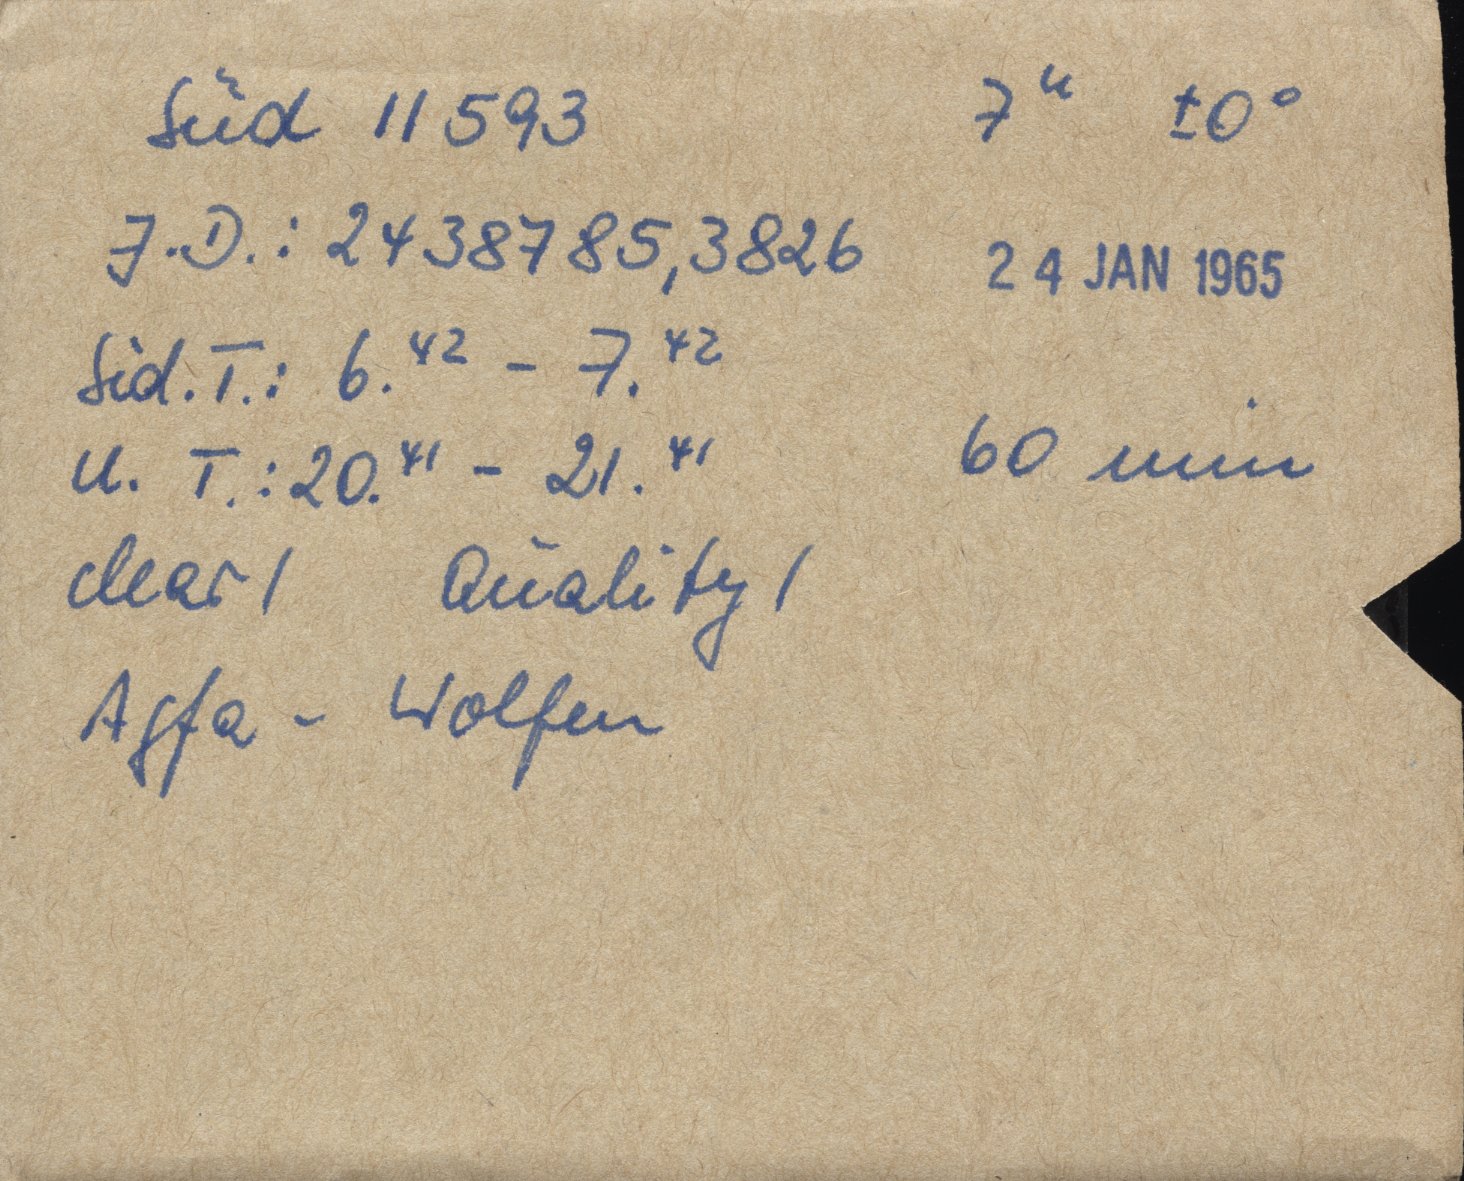 Süd 11593 7ᵘ ±0°
J.D.: 2438785,3826 24 JAN 1965
Sid.T.: 6.⁴² - 7.⁴²
U. T.: 20.⁴¹ - 21.⁴¹ 60 min
clear 1 Quality 1
Agfa - Wolfen